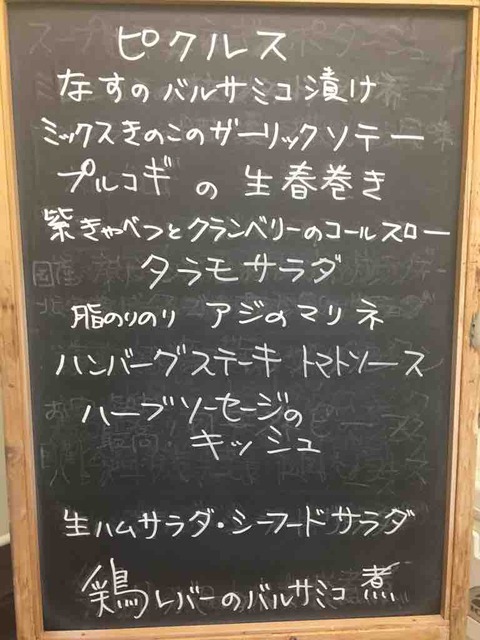 ピクルス
なすのバルサミコ漬け
ミックスきのこのガーリックソテー
プルコギの生春巻き
紫きゃべつとクランベリーのコールスロー
タラモサラダ
脂のりのり アジのマリネ
ハンバーグステーキ トマトソース
ハーブソーセージの
キッシュ
生ハムサラダ・シーフードサラダ
鶏レバーのバルサミコ煮